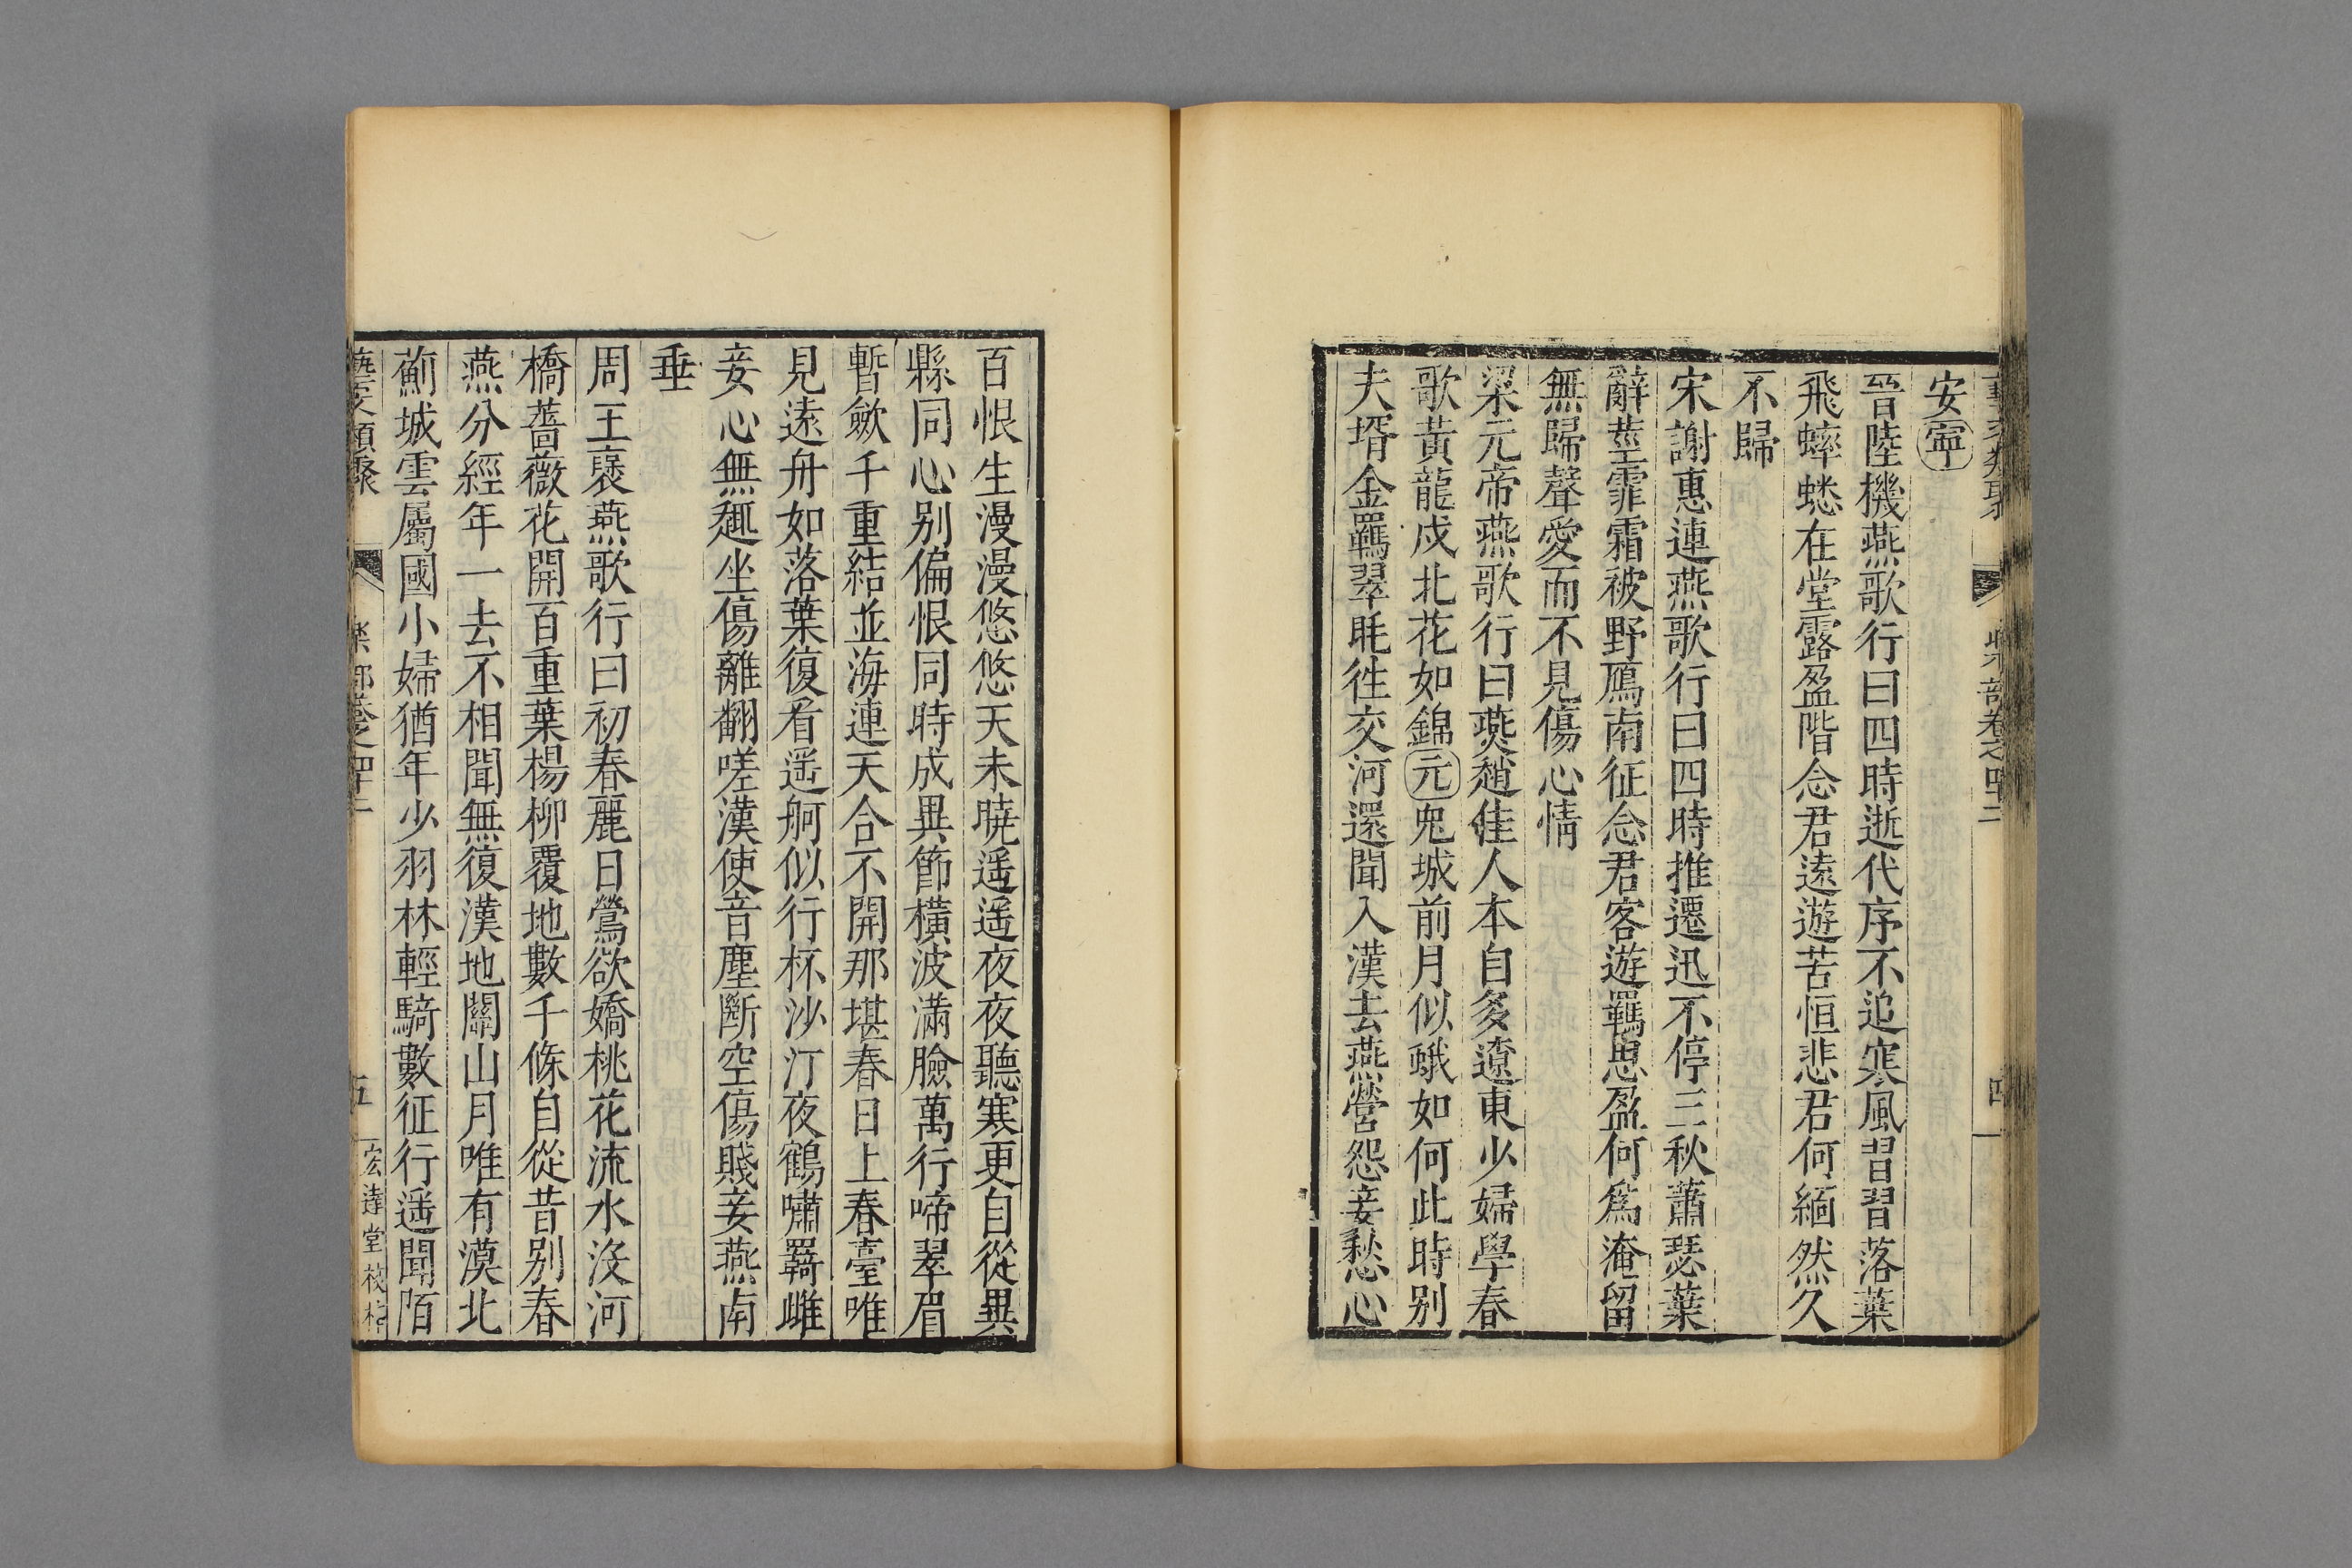 安寧
晉陸機燕歌行曰四時逝代序不追寒風習習落葉
飛蟀蟋在堂露盈階念君遠遊苦恒悲君何緬然久
不歸
宋謝惠連燕歌行曰四時推遷迅不停三秋蕭瑟葉
辭莖霏霜被野鴈南征念君客遊羈思盈何爲淹留
無歸聲愛而不見傷心情
梁元帝燕歌行曰燕趙佳人本自多遼東少婦學春
歌黃龍戍北花如錦元兎城前月似蛾如何此時別
夫壻金羈翠眊往交河還聞入漢去燕營怨妾愁心
百恨生漫漫悠悠天未曉遥遥夜夜聽寒更自從異
縣同心别偏恨同時成異節橫波滿臉萬行啼翠眉
暫歛千重結並海連天合不開那堪春日上春臺唯
見遠舟如落葉復看遥舸似行杯沙汀夜鶴嘯羇雌
妾心無趣坐傷離翻嗟漢使音塵斷空傷賤妾燕南
垂
周王襃燕歌行曰初春麗日鶯欲嬌桃花流水沒河
橋薔薇花開百重葉楊柳覆地數千條自從昔別春
燕分經年一去不相聞無復漢地關山月唯有漠北
薊城雲屬國小婦猶年少羽林輕騎數征行遥聞陌
五 宏達堂